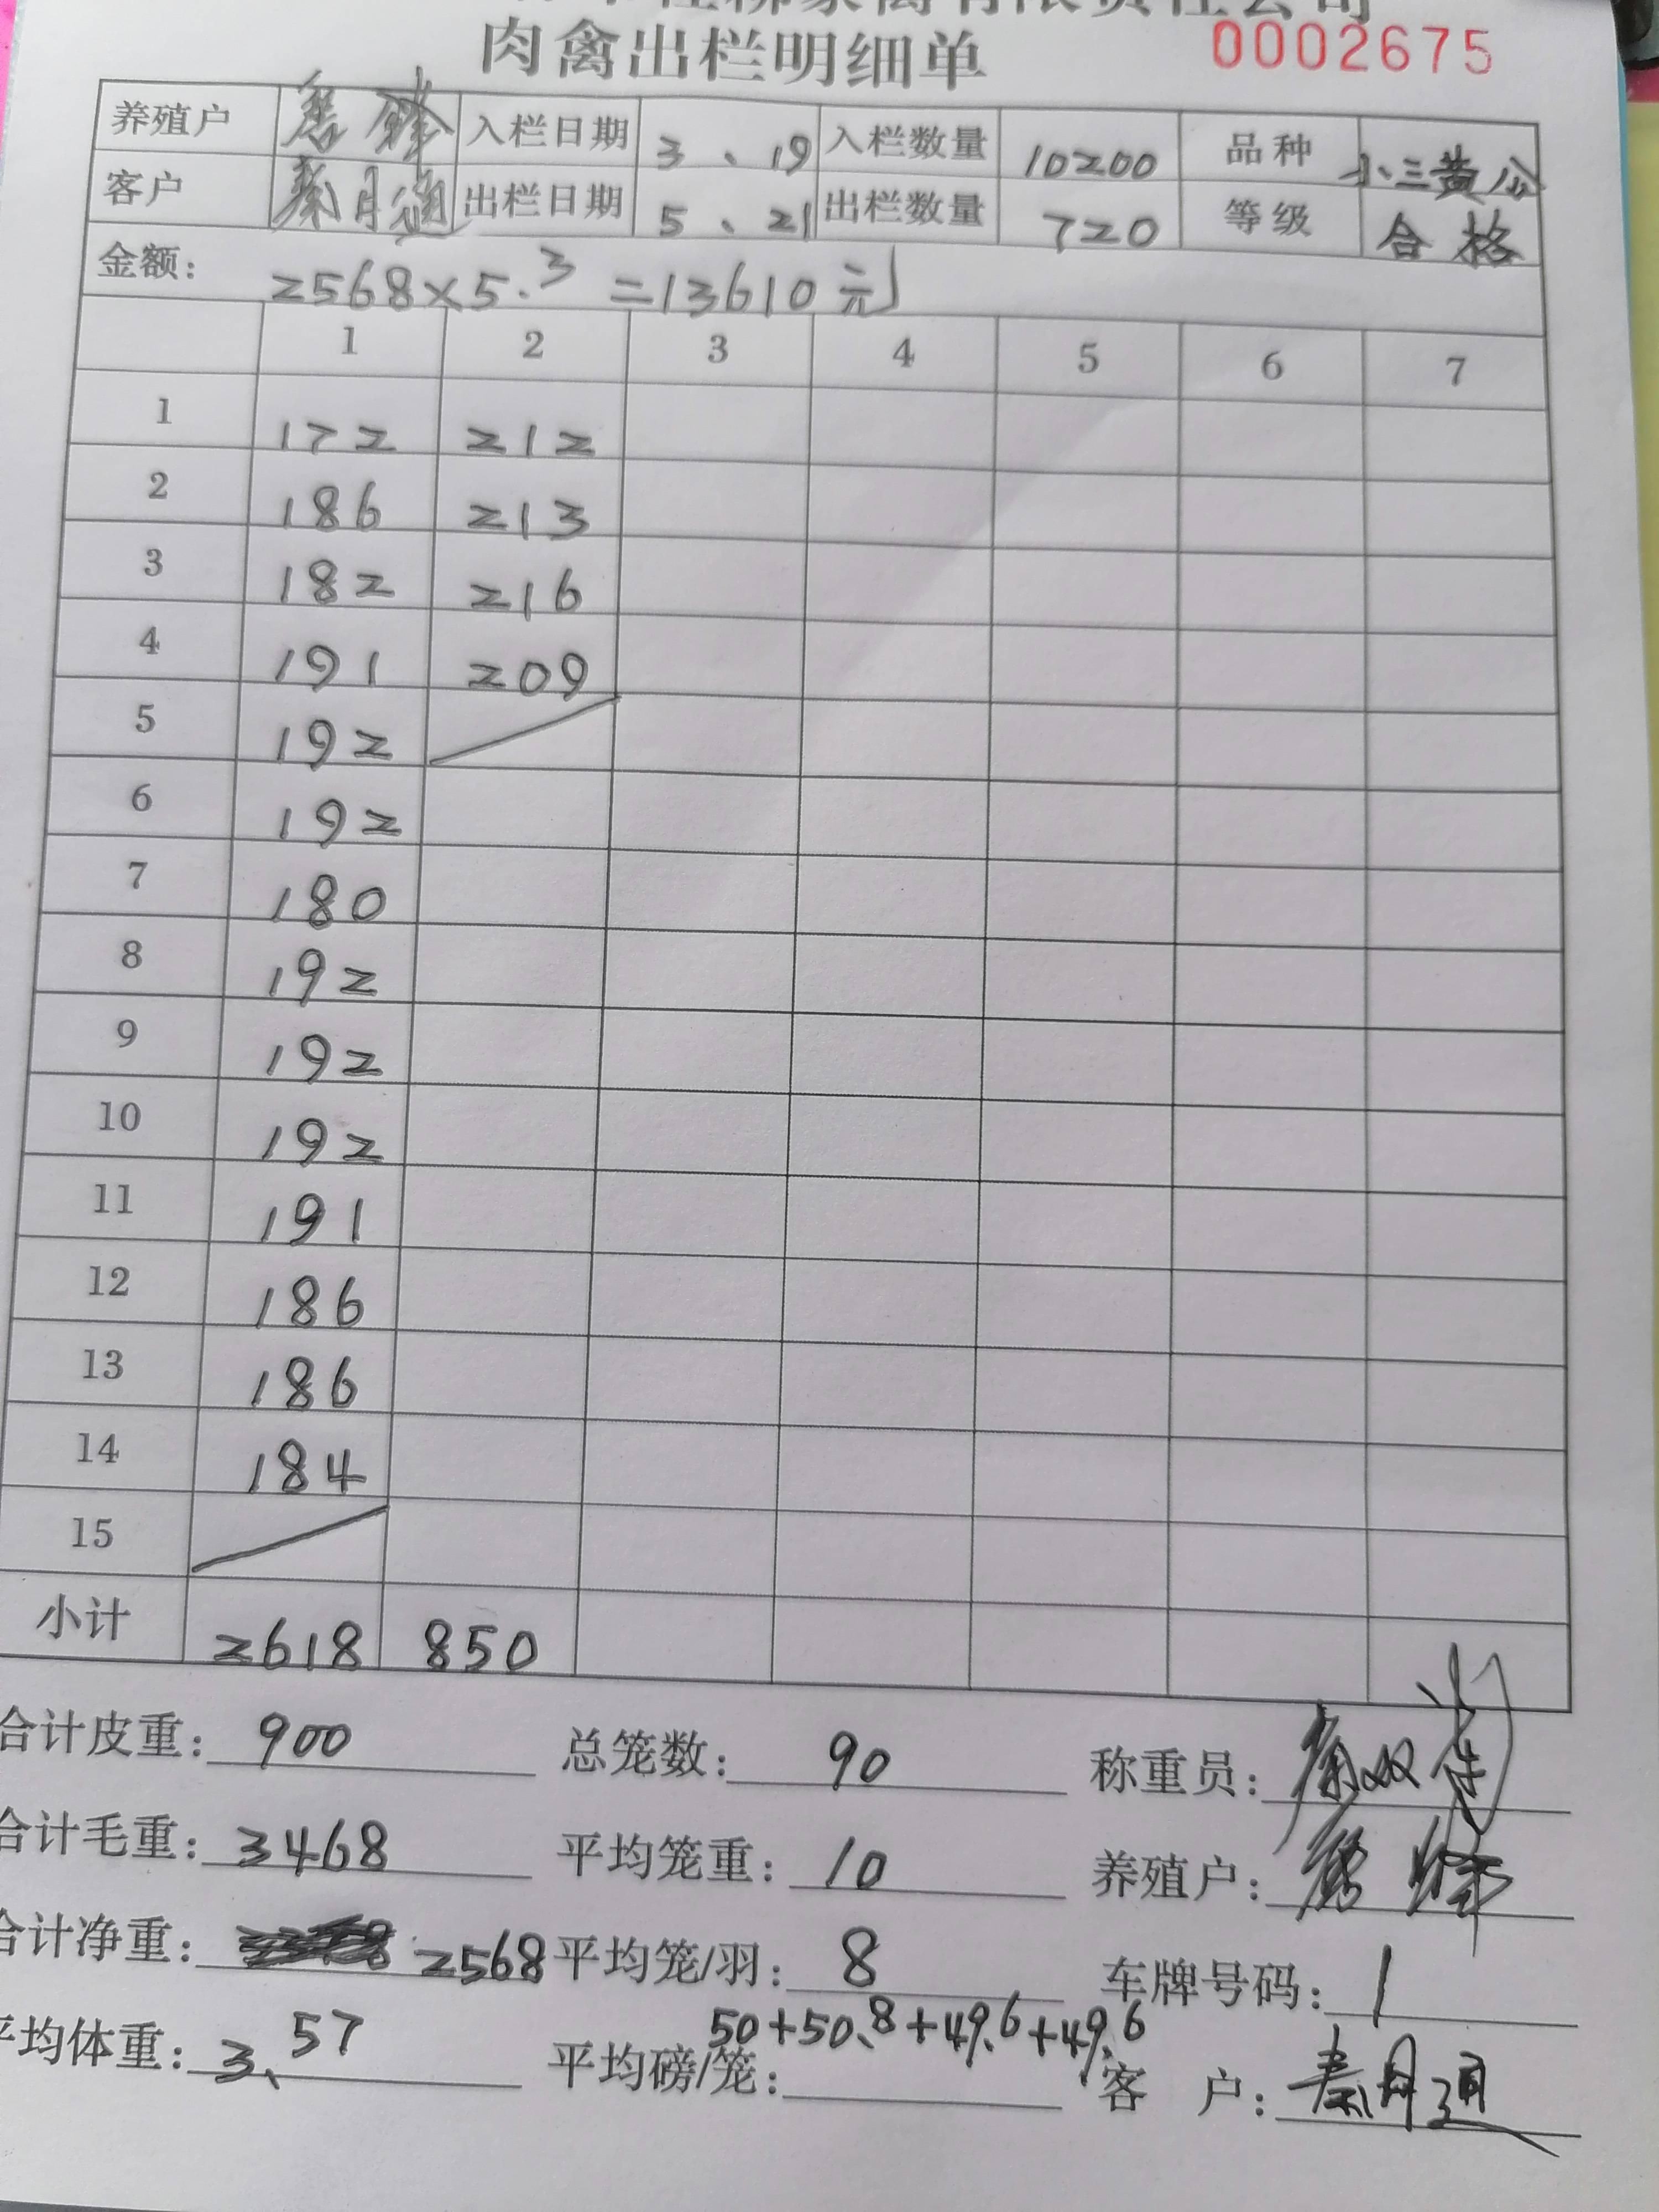 家禽有限责任公司
肉禽出栏明细单 0002675
养殖户 入栏日期 3、19 入栏数量 10200 品种 小三黄公
客户 秦月通 出栏日期 5、21 出栏数量 720 等级 合格
金额: 2568×5.3=13610元
1 2 3 4 5 6 7
1 172 212
2 186 213
3 182 216
4 191 209
5 192
6 192
7 180
8 192
9 192
10 192
11 191
12 186
13 186
14 184
15
小计 2618 850
合计皮重: 900 总笼数: 90 称重员:
合计毛重: 3468 平均笼重: 10 养殖户:
合计净重: 2568 平均笼/羽: 8 车牌号码: 1
50+50.8+49.6+49.6
平均体重: 3、57 平均磅/笼: 客 户: 秦月通